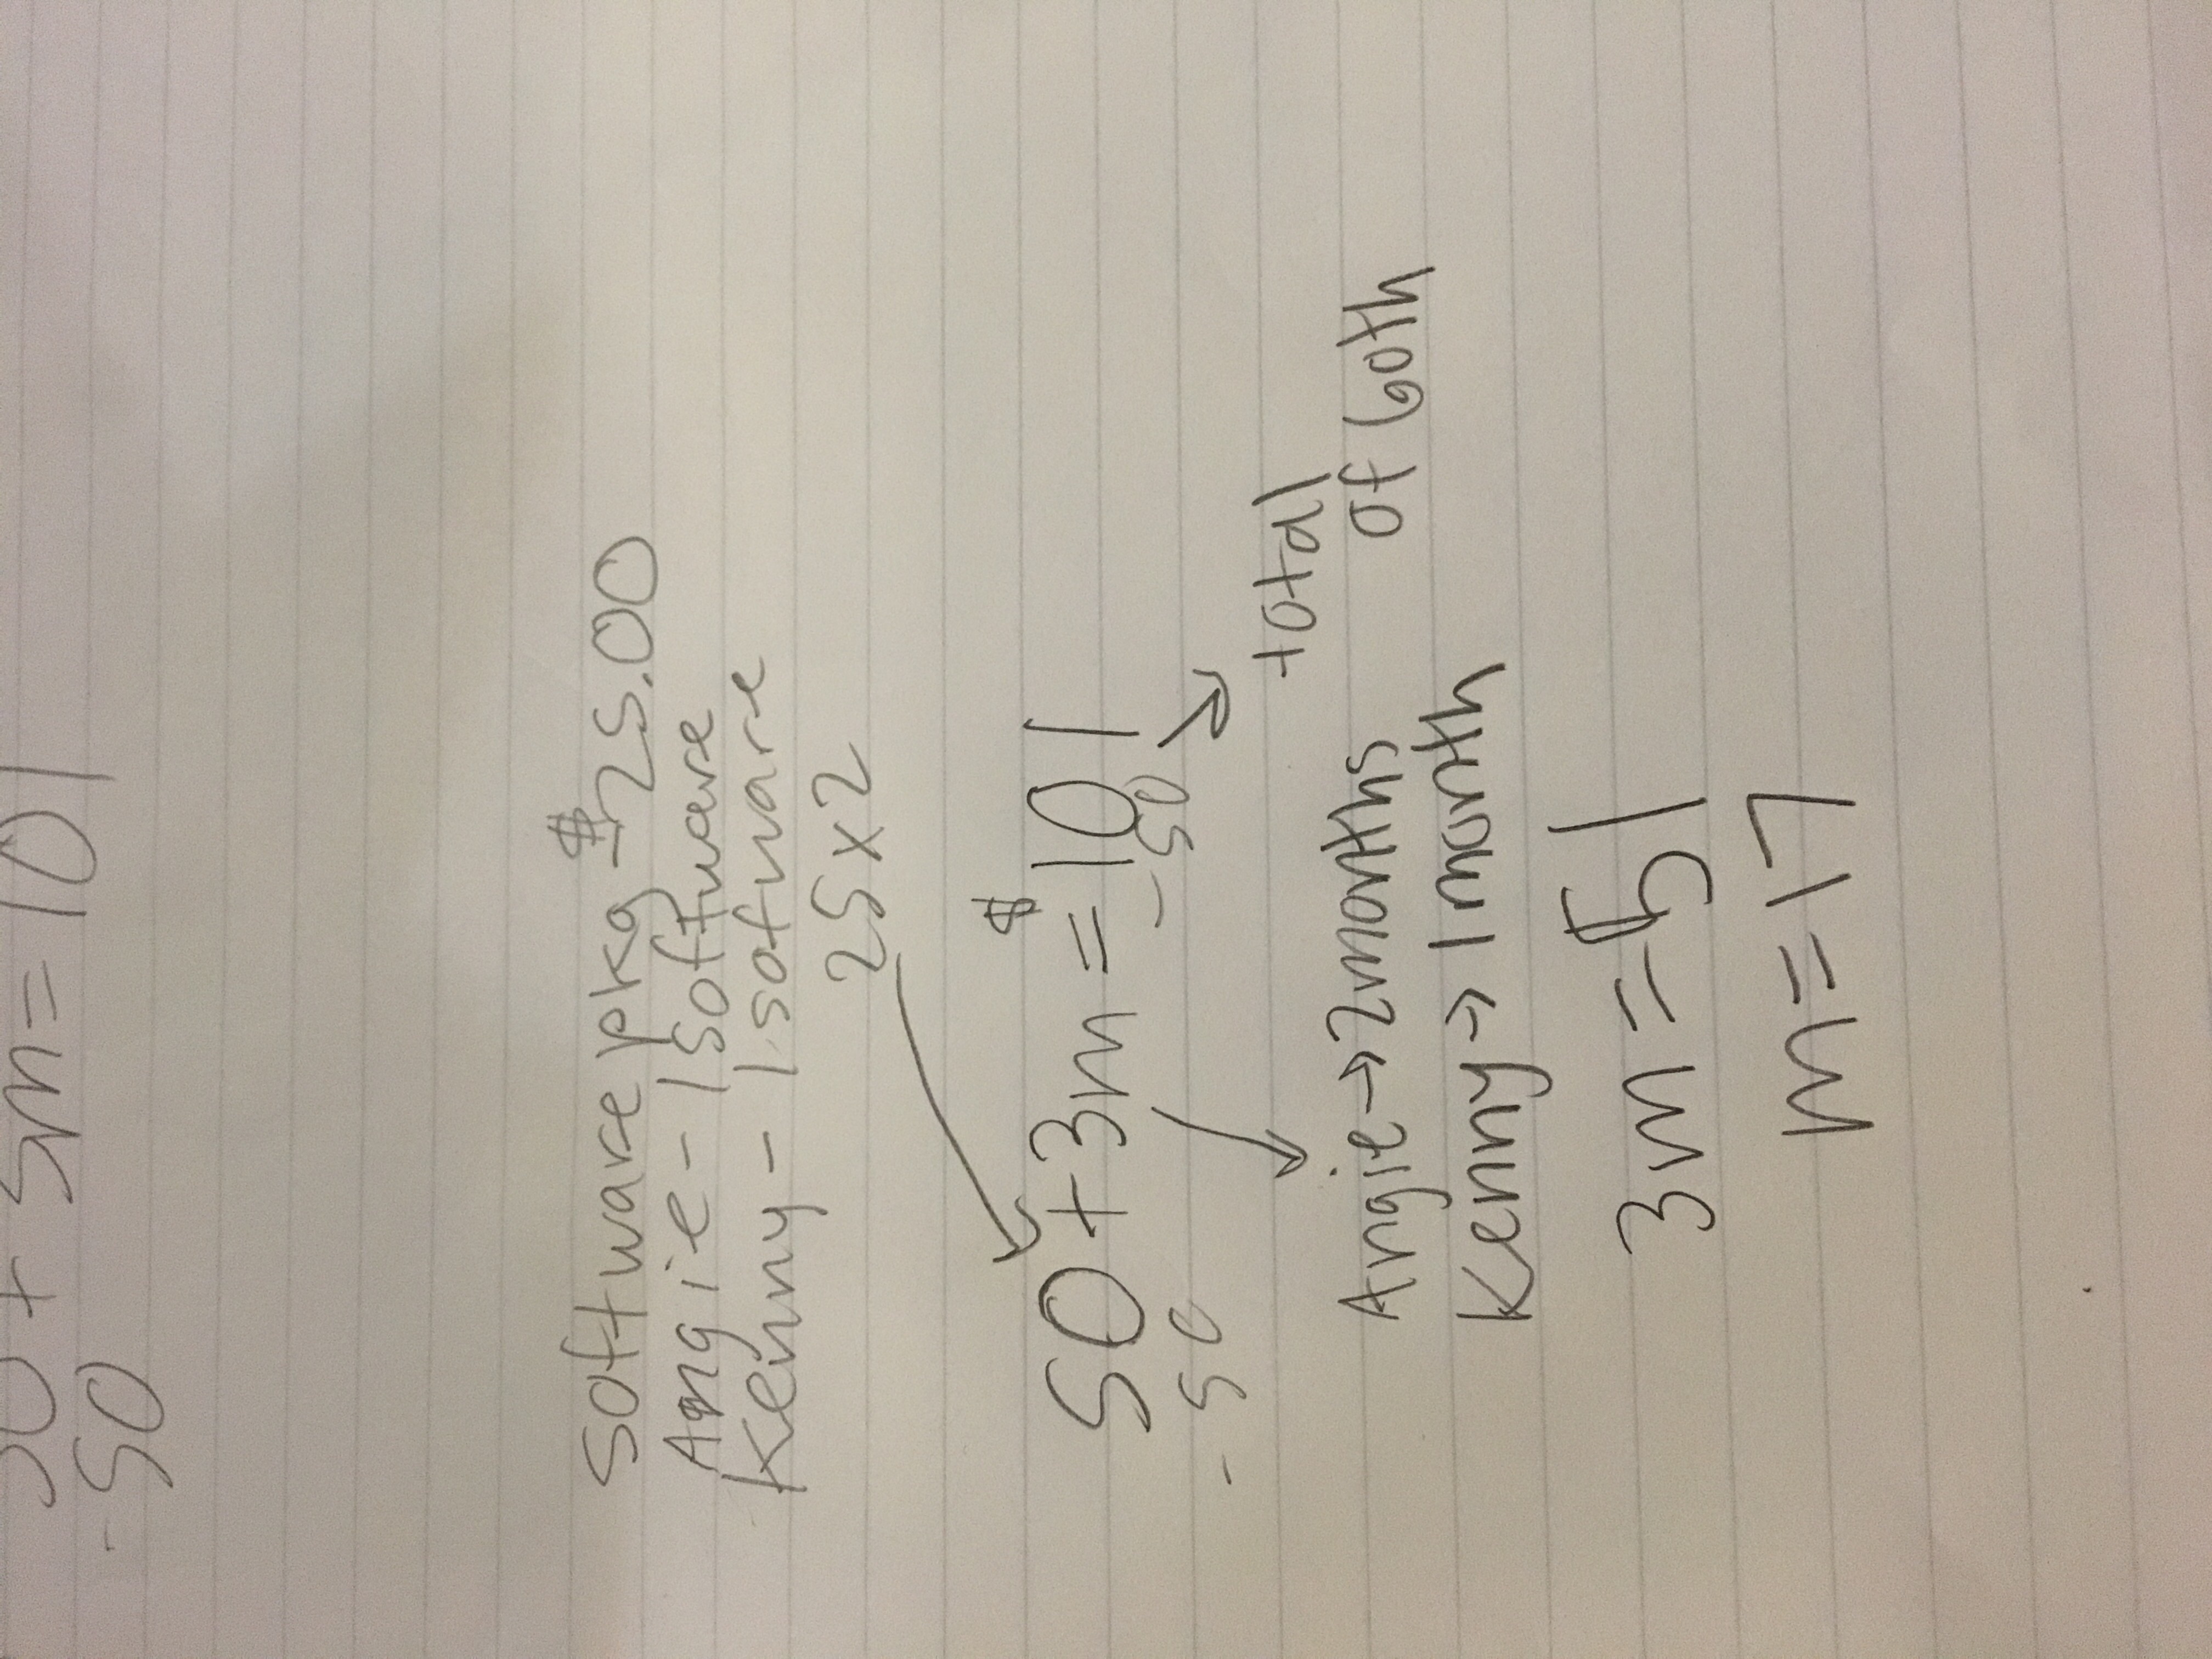 50 + 3m = 101
- 50
Software pkg - $25.00
Angie - 1 software
Kenny - 1 software
25 x 2
50 + 3m = $101
- 50 - 50
total
of both
Angie → 2 months
Kenny → 1 month
3m = 51
m = 17